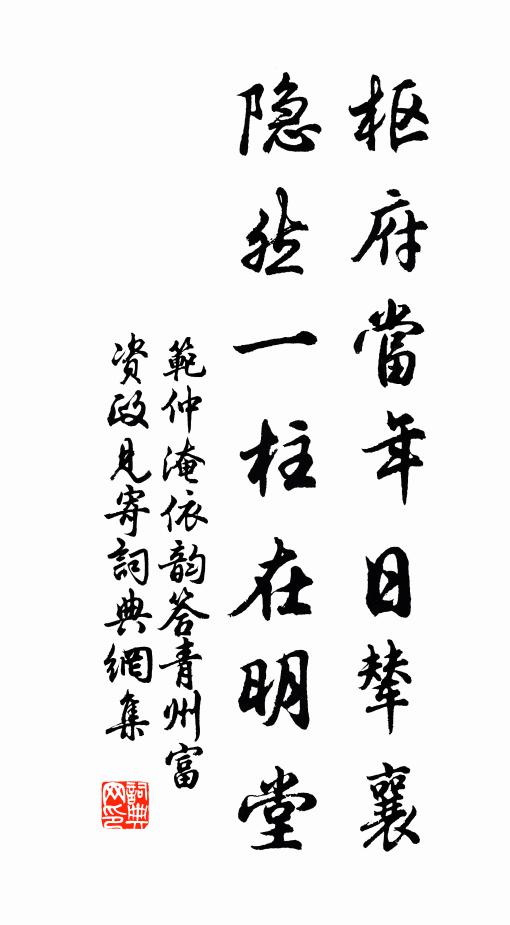 枢府當年日輦襄
隐然一柱在明堂
範仲淹依韵答青州富
资政見寄詞典網集
詞典网印